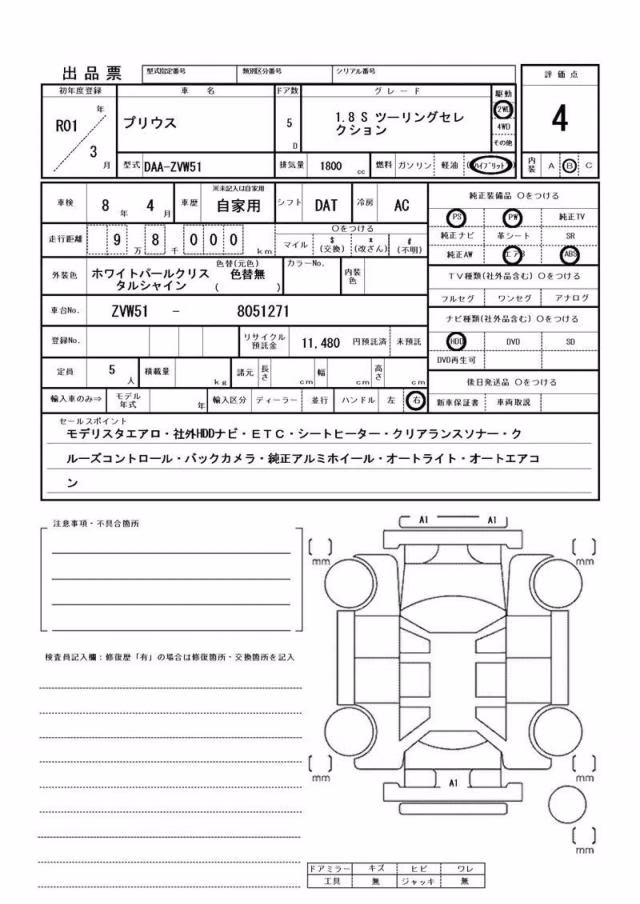 出品票 型式指定番号 類別区分番号 シリアル番号
評価点
4
初年度登録 車名 ドア数 グレード 駆動
R01 年 3 月
プリウス
5 D
1.8S ツーリングセレ
クション
2WD
4WD
その他
型式 DAA-ZVW51 排気量 1800 cc 燃料 ガソリン 軽油 (ハイブリッド) 内装 A B C
車検 8 年 4 月 車歴 ※未記入は自家用 自家用 シフト DAT 冷房 AC
走行距離 9 万 8 千 0 0 0 km
○をつける
マイル $ (交換) * (改ざん) # (不明)
外装色 ホワイトパールクリス
タルシャイン
色替(元色)
色替無
( )
カラーNo. 内装色
車台No. ZVW51 - 8051271
登録No. リサイクル預託金 11,480 円預託済 未預託
定員 5 人 積載量 kg 諸元 長さ cm 幅 cm 高さ cm
輸入車のみ⇒ モデル年式 年 輸入区分 ディーラー 並行 ハンドル 左 右
純正装備品 ○をつける
PS PW 純正TV
純正ナビ 革シート SR
純正AW エアB ABS
TV種類(社外品含む) ○をつける
フルセグ ワンセグ アナログ
ナビ種類(社外品含む) ○をつける
HDD DVD SD
DVD再生可
後日発送品 ○をつける
新車保証書 車両取説
セールスポイント
モデリスタエアロ・社外HDDナビ・ETC・シートヒーター・クリアランスソナー・ク
ルーズコントロール・バックカメラ・純正アルミホイール・オートライト・オートエアコ
ン
注意事項・不具合箇所
検査員記入欄:修復歴「有」の場合は修復箇所・交換箇所を記入
A1 A1
[ ] mm [ ] mm
[ ] mm [ ] mm
A1
[ ] mm
ドアミラー キズ ヒビ ワレ
工具 無 ジャッキ 無